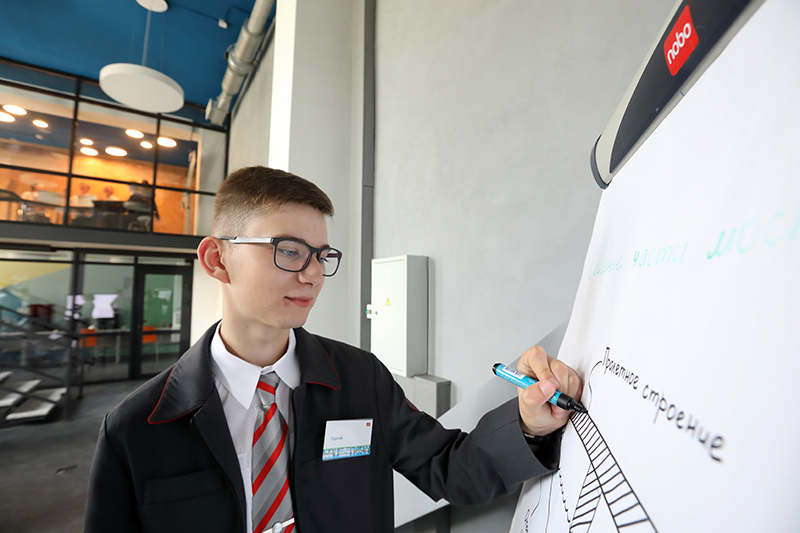 nobo
части мос
Пролетное строение
Сергей